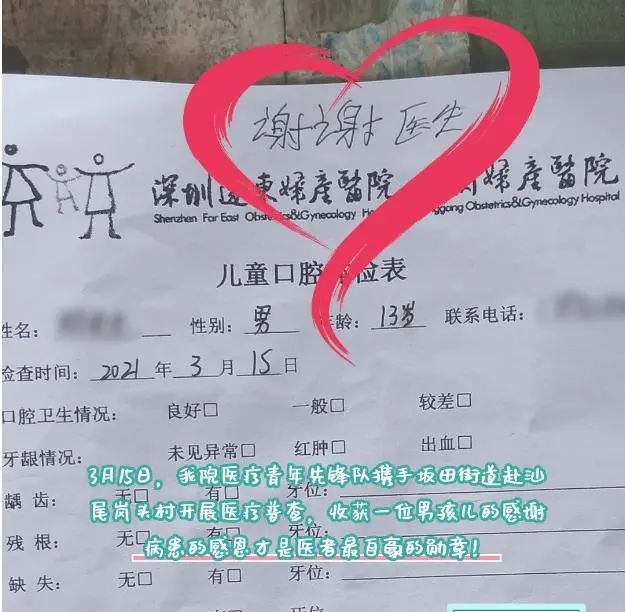 谢谢医生
深圳远东婦產醫院 婦產醫院
Shenzhen Far East Obstetrics&Gynecology H ggang Obstetrics&Gynecology Hospital
儿童口腔 检表
姓名: 性别: 男 年龄: 13岁 联系电话:
检查时间: 2021 年 3 月 15 日
口腔卫生情况: 良好□ 一般□ 较差□
牙龈情况: 未见异常□ 红肿□ 出血□
3月15日，我院医疗青年先锋队携手坂田街道赴汕
龋 齿: 无□ 有□ 牙位:
尾岗头村开展医疗普查，收获一位男孩儿的感谢
残 根: 无□ 有□ 牙位:
病患的感恩才是医者最自豪的勋章！
缺 失: 无□ 有□ 牙位:
牙位: